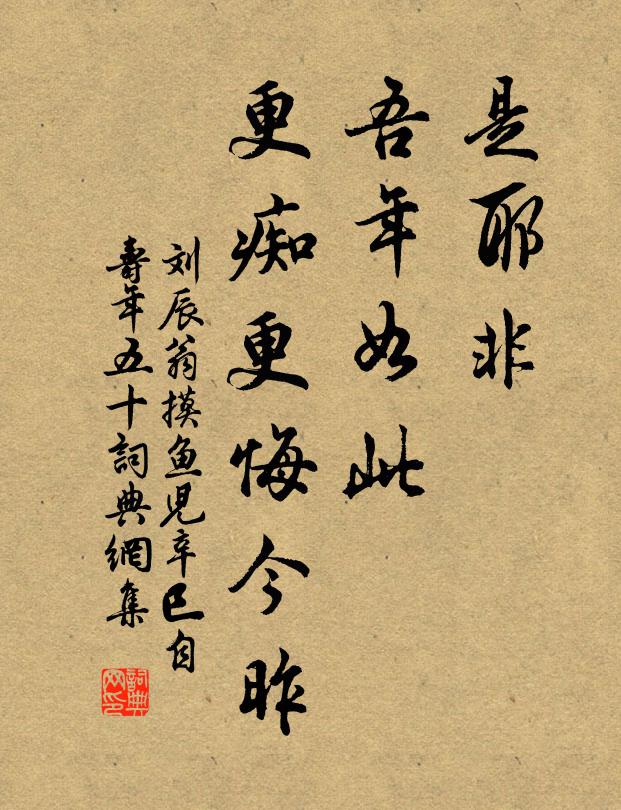 是耶非
吾年如此
更痴更悔今昨
刘辰翁摸鱼児辛巳自
壽年五十詞典網集
詞典
网印